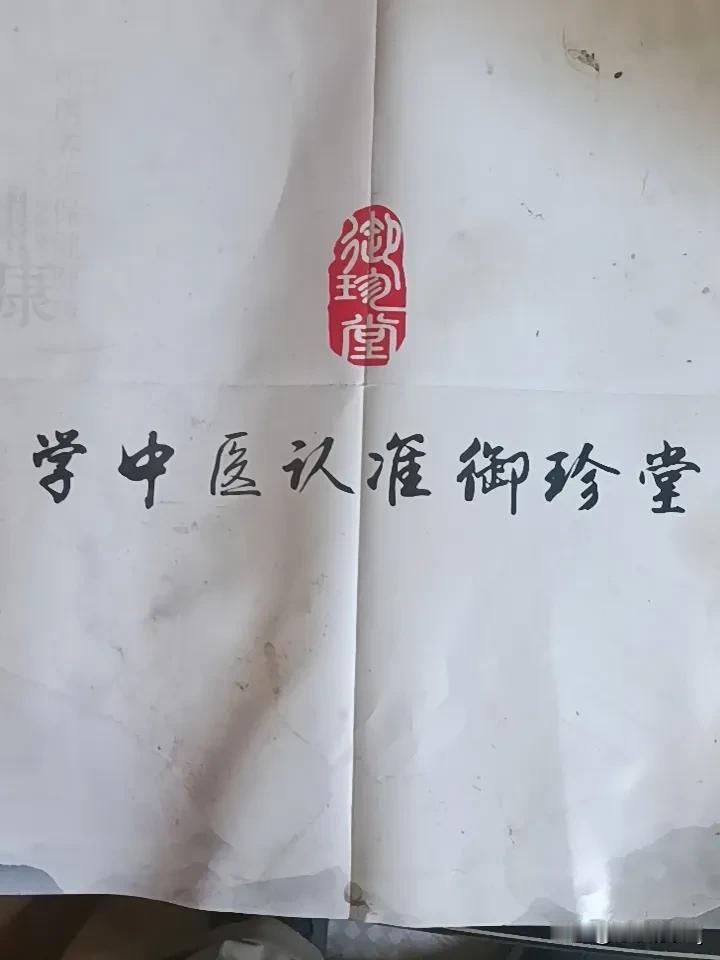 御珍堂
学中医认准御珍堂
康